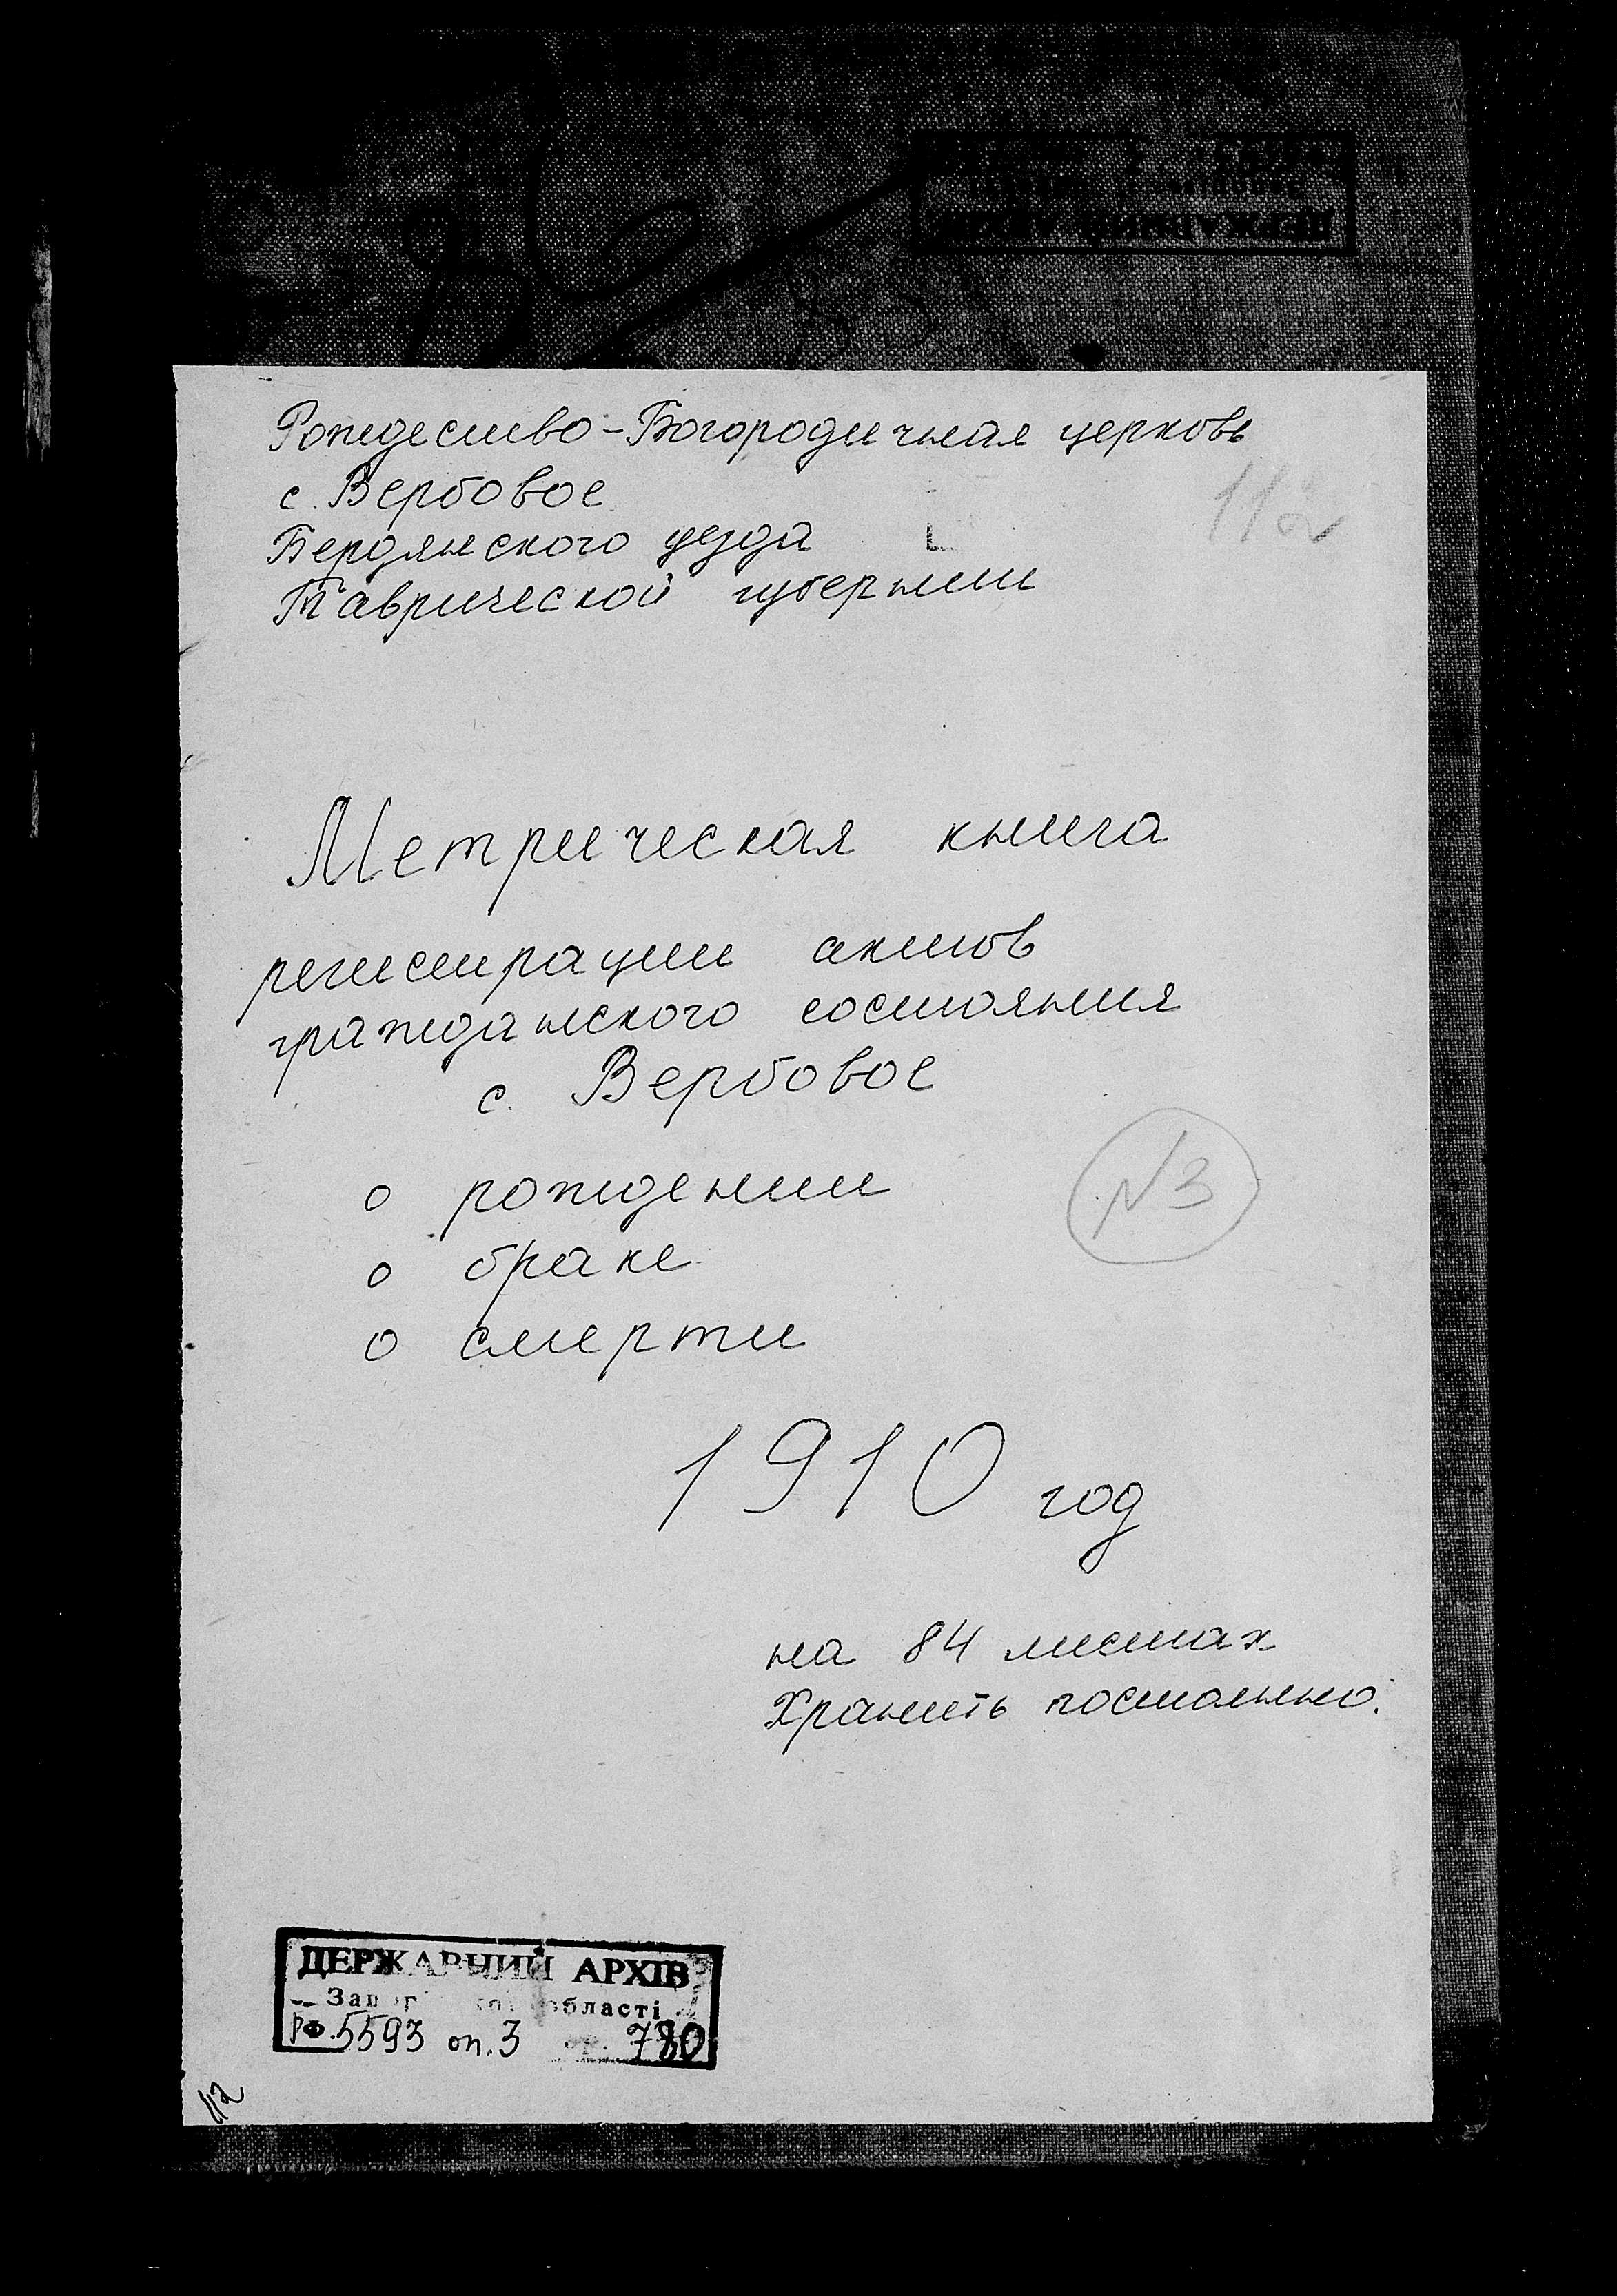 Рождество-Богородичная церковь
с. Вербовое
Бердянского уезда
Таврической губернии
Метрическая книга
регистрации актов
гражданского состояния
с. Вербовое
о рождении
о браке
о смерти
N3
1910 год
на 84 листах
Хранить постоянно.
ДЕРЖАВНИЙ АРХІВ
області
Р Ф. 5593 оп. 3 780
112